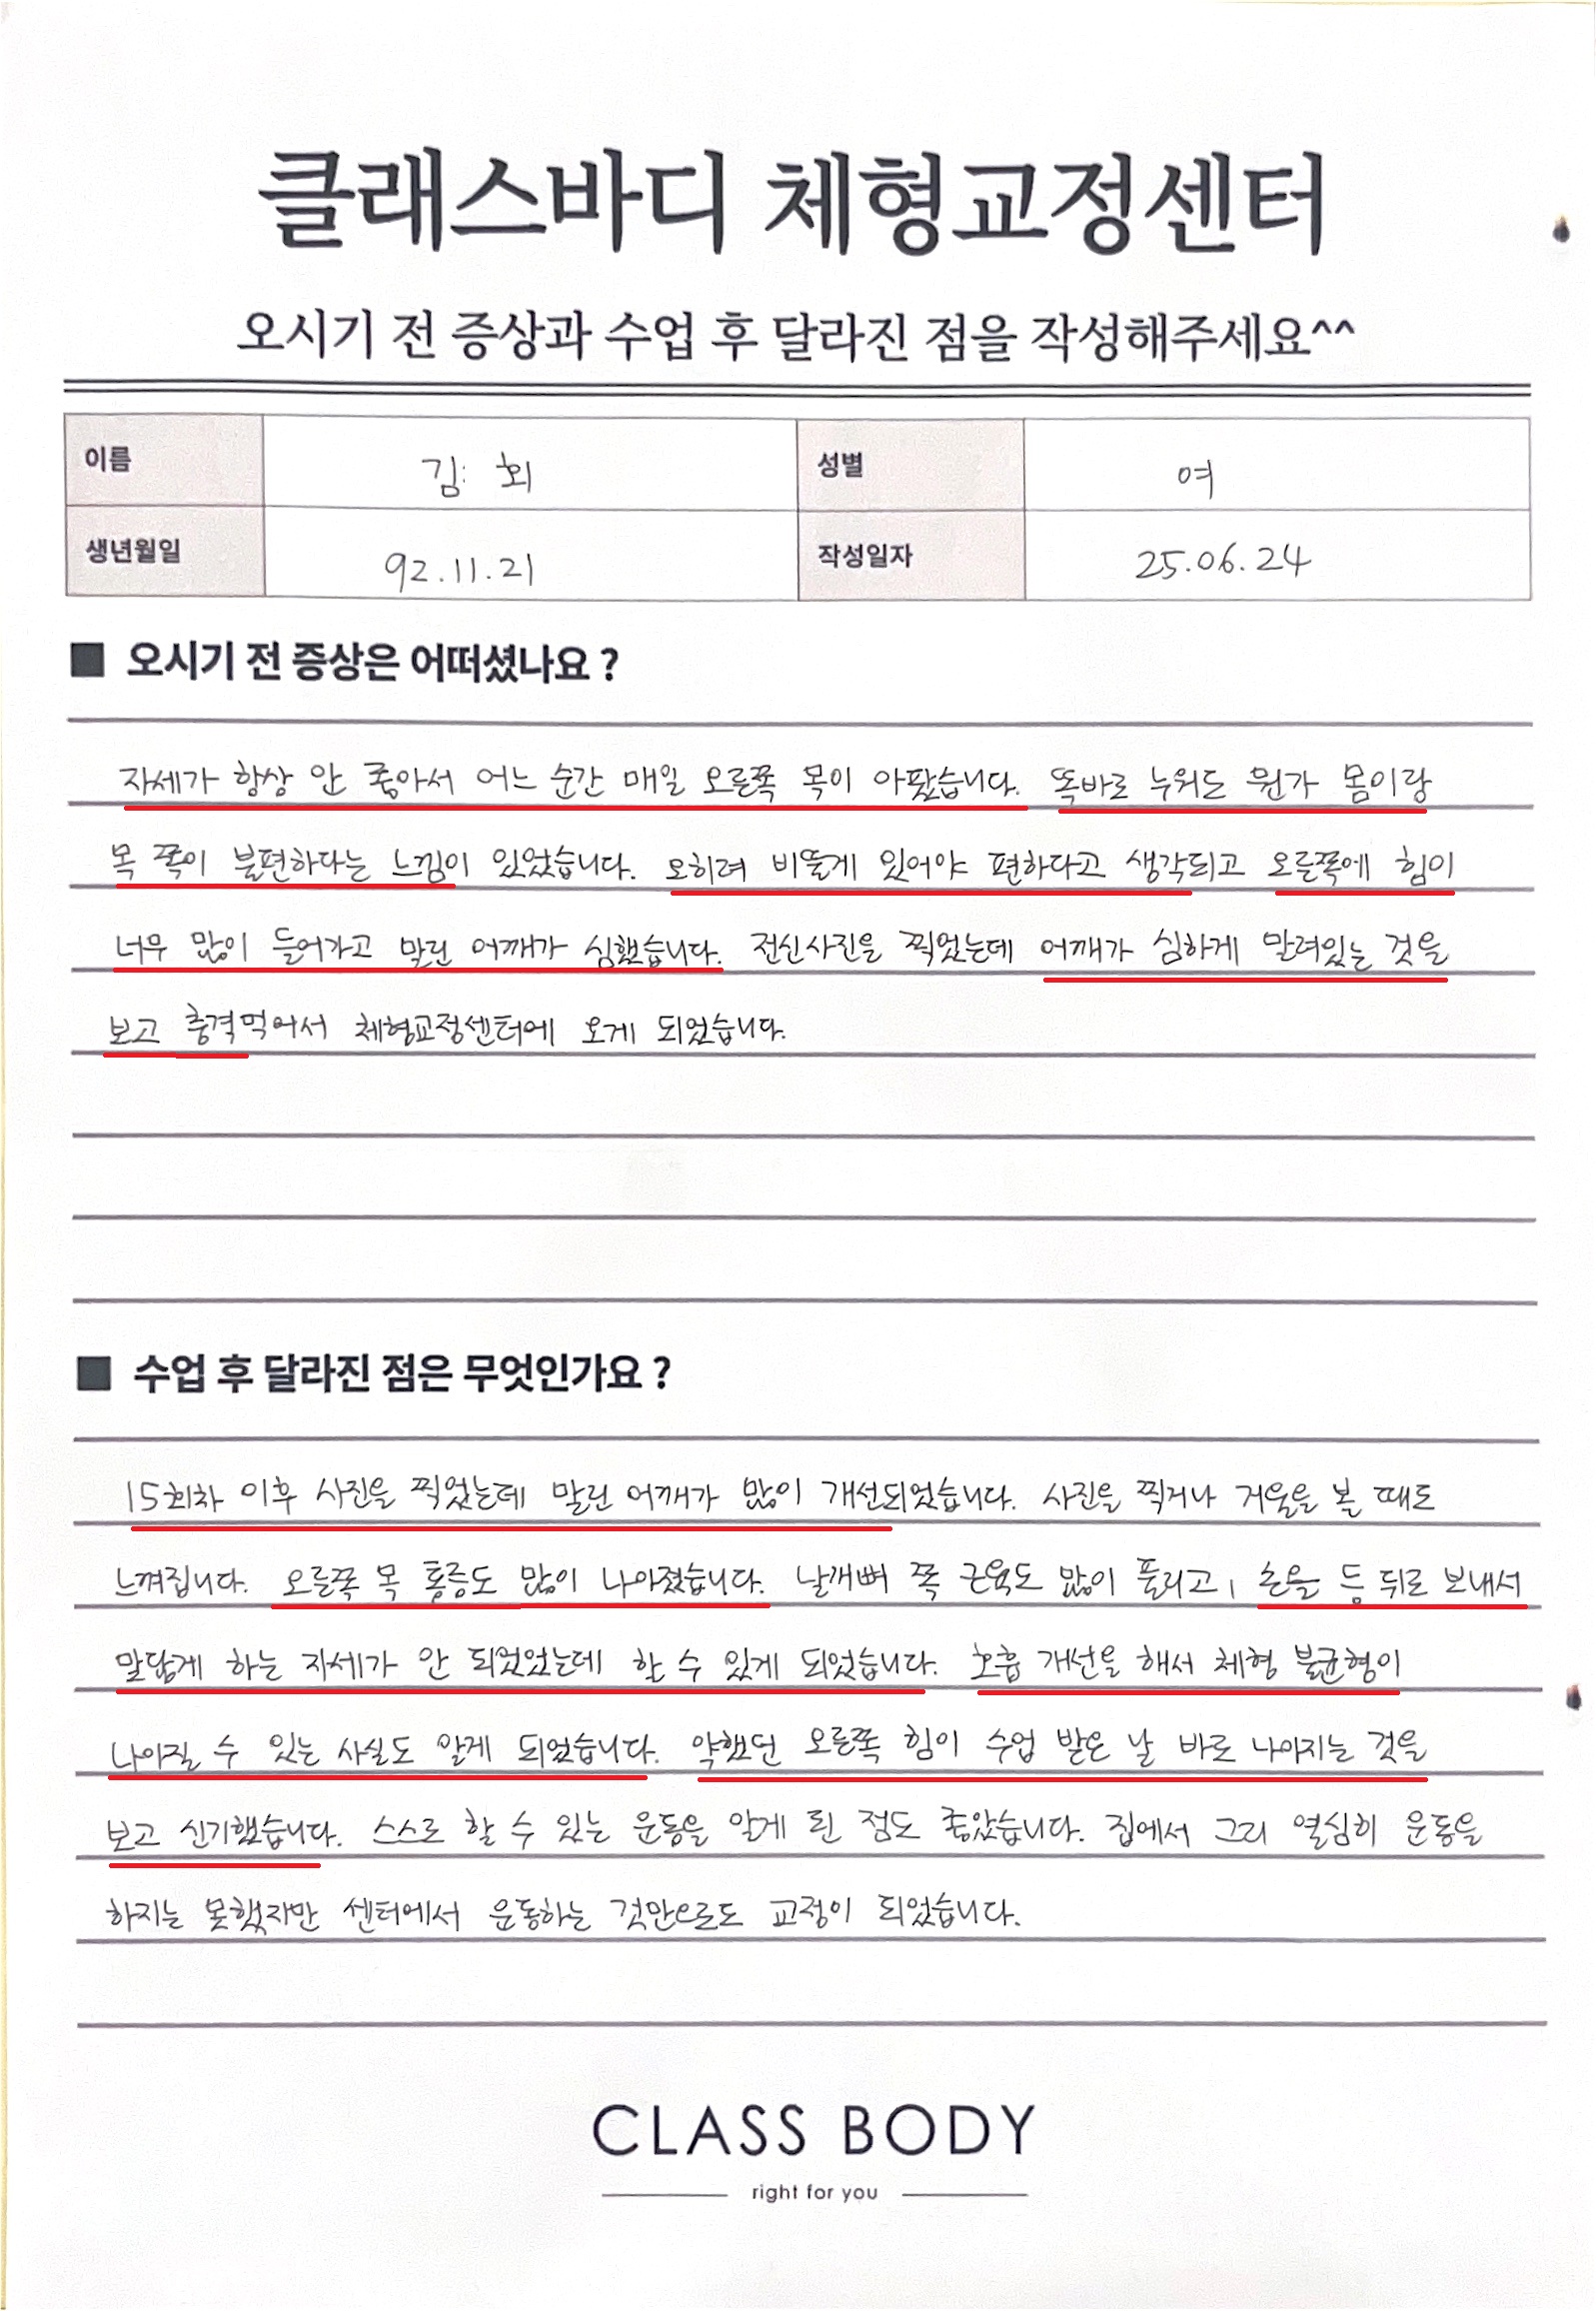 클래스바디 체형교정센터
오시기 전 증상과 수업 후 달라진 점을 작성해주세요^^
이름 김 회 성별 여
생년월일 92.11.21 작성일자 25.06.24
■ 오시기 전 증상은 어떠셨나요 ?
자세가 항상 안 좋아서 어느 순간 매일 오른쪽 목이 아팠습니다. 똑바로 누워도 뭔가 몸이랑
목 쪽이 불편하다는 느낌이 있었습니다. 오히려 비뚤게 있어야 편하다고 생각되고 오른쪽에 힘이
너무 많이 들어가고 말린 어깨가 심했습니다. 전신사진을 찍었는데 어깨가 심하게 말려있는 것을
보고 충격먹어서 체형교정센터에 오게 되었습니다.
■ 수업 후 달라진 점은 무엇인가요 ?
15회차 이후 사진을 찍었는데 말린 어깨가 많이 개선되었습니다. 사진을 찍거나 거울을 볼 때도
느껴집니다. 오른쪽 목 통증도 많이 나아졌습니다. 날개뼈 쪽 근육도 많이 풀리고, 손을 등 뒤로 보내서
맞닿게 하는 자세가 안 되었었는데 할 수 있게 되었습니다. 호흡 개선을 해서 체형 불균형이
나아질 수 있는 사실도 알게 되었습니다. 약했던 오른쪽 힘이 수업 받은 날 바로 나아지는 것을
보고 신기했습니다. 스스로 할 수 있는 운동을 알게 된 점도 좋았습니다. 집에서 그리 열심히 운동을
하지는 못했지만 센터에서 운동하는 것만으로도 교정이 되었습니다.
CLASS BODY
right for you